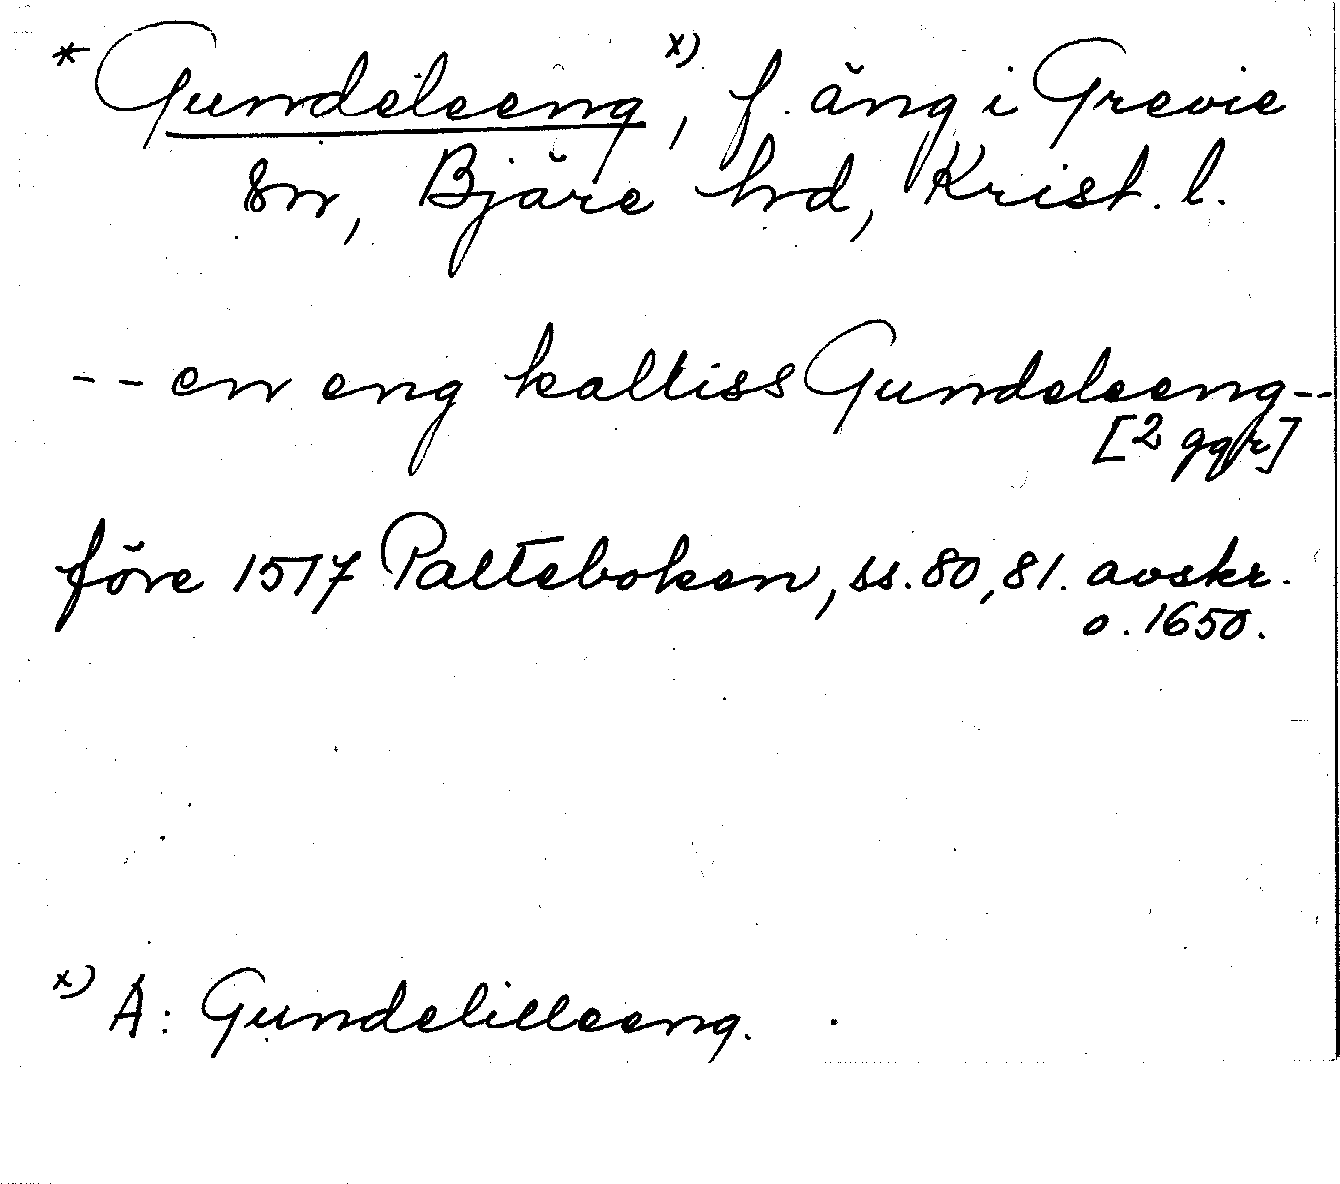 * Gundeleeng x), f. äng i Grevie
sn, Bjäre hd, Krist. l.
-- en eng kalliss Gundeleeng --
[2 ggr]
före 1517 Palteboken, ss. 80, 81. avskr.
o. 1650.
x) A: Gundelilleeng.